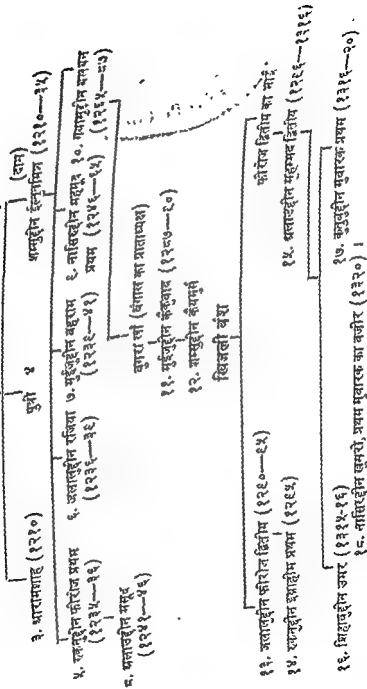 ३. आरामशाह (१२१०)
पुत्री ४
(दाम)
शम्सुद्दीन ईल्तुतमिश (१२१०—३५)
५. रुकनुद्दीन फीरोज प्रथम
(१२३५—३६)
६. जलालुद्दीन रजिया
(१२३६—३९)
७. मुईजुद्दीन बहराम
(१२३९—४१)
८. अलाउद्दीन मसूद
(१२४१—४६)
९. नासिरुद्दीन महमूद
प्रथम (१२४६—६५)
१०. गयासुद्दीन बलबन
(१२६५—८७)
बुगरा खाँ (बंगाल का प्रांताध्यक्ष)
११. मुईजुद्दीन कैकुबाद (१२८७—९०)
१२. शम्सुद्दीन कैयूमर्स
खिलजी वंश
१३. जलालुद्दीन फीरोज द्वितीय (१२९०—९५)
फीरोज द्वितीय का भाई
१४. रुकनुद्दीन इब्राहीम प्रथम (१२९५)
१५. अलाउद्दीन मुहम्मद द्वितीय (१२९६—१३१६)
१६. शिहाबुद्दीन उमर (१३१५-१६)
१७. कुतुबुद्दीन मुबारक प्रथम (१३१६—२०)
१८. नासिरुद्दीन खुसरो, प्रथम मुबारक का वजीर (१३२०) ।